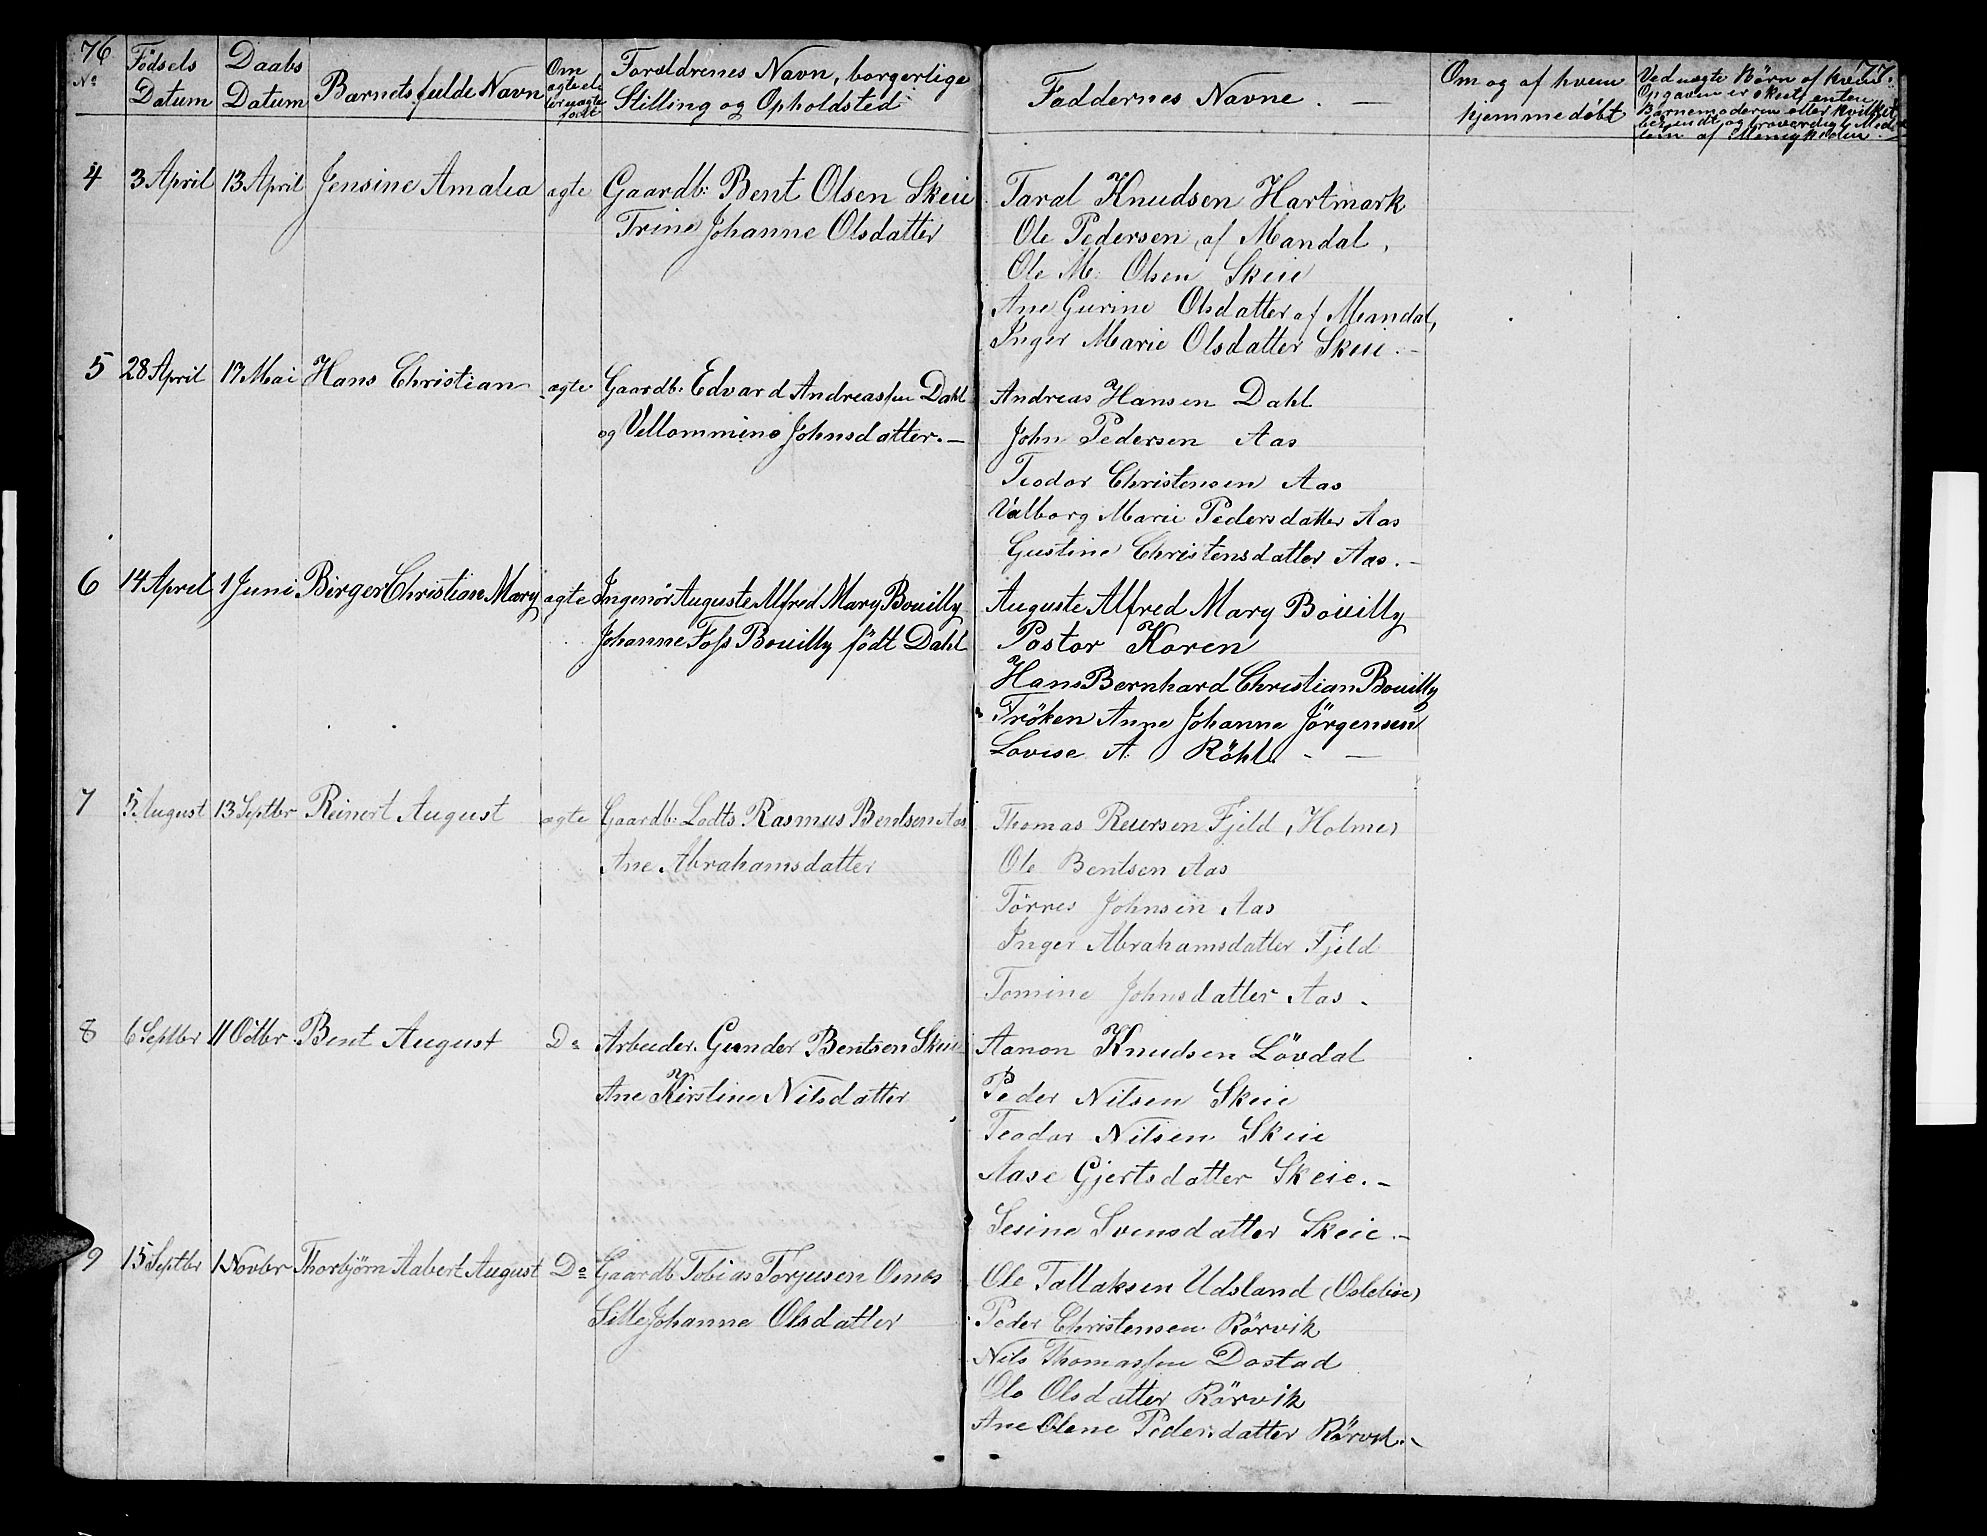 76
77.
No
Fødsels Datum
Daabs Datum
Barnets fulde Navn
Om ægte el. er uægte født
Forældrenes Navn, borgerlige
Stilling og Opholdsted
Faddernes Navne. —
Om og af hvem
hjemmedøbt
Ved uægte Børn af hvem
Opgaven er skeet, enten
Barnemoderen eller hvilket
4 3 April 13 April Jensine Amalia ægte Gaardb: Bent Olsen Skeie
Trine Johanne Olsdatter
Taral Knudsen Hartmark
Ole Pedersen, af Mandal,
Ole M: Olsen Skeie
Ane Gurine Olsdatter af Mandal,
Inger Marie Olsdatter Skeie. –
5 28 April 17 Mai Hans Christian ægte Gaardb: Edvard Andreassen Dahl
og Vellommine Johnsdatter. –
Andreas Hansen Dahl
John Pedersen Aas
Teodor Christensen Aas
Valborg Marie Pedersdatter Aas
Gustine Christensdatter Aas. –
6 14 April 1 Juni Birger Christian Mary ægte Ingenör Auguste Alfred Mary Bouilly
Johanne Foss Bouilly födt Dahl
Auguste Alfred Mary Bouilly
Pastor Koren
Hans Bernhard Christian Bouilly
Fröken Anne Johanne Jörgensen
Lovise A. Röhl. – —
7 5 August 13 Septbr Reinert August ægte Gaardb: Lodts Rasmus Bentsen Aas
Ane Abrahamsdatter
Thomas Reiersen Fjeld, Holme,
Ole Bentsen Aas
Törres Johnsen Aas
Inger Abrahamsdatter Fjeld
Tomine Johnsdatter Aas –
8 6 Septbr 11 Octbr. Bent August Do Arbeider. Gunder Bentsen Skeie
Ane Kirstine Nilsdatter
Aanon Knudsen Lövdal
Peder Nilsen Skeie
Teodor Nilsen Skeie
Aase Gjertsdatter Skeie. –
Sesine Svensdatter Skeie. –
9 15 Septbr 1 Novbr Thorbjörn Aabert August Do Gaardb Tobias Torjusen Omes
Sille Johanne Olsdatter
Ole Tallaksen Udsland (Oslebö)
Peder Christensen Rörvik
Nils Thomassen Dastad
Ole Olsdatter Rörvik
Ane Olene Pedersdatter Rörvik. –